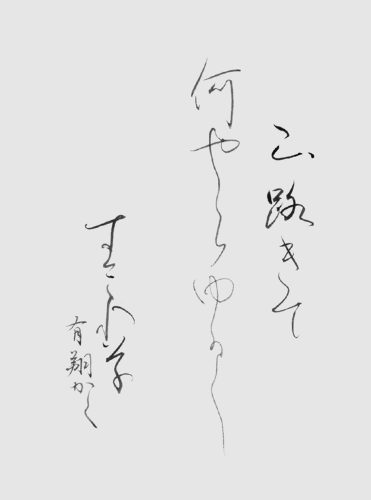 山路きて
何やらゆかし
すみれ草
有翔かく